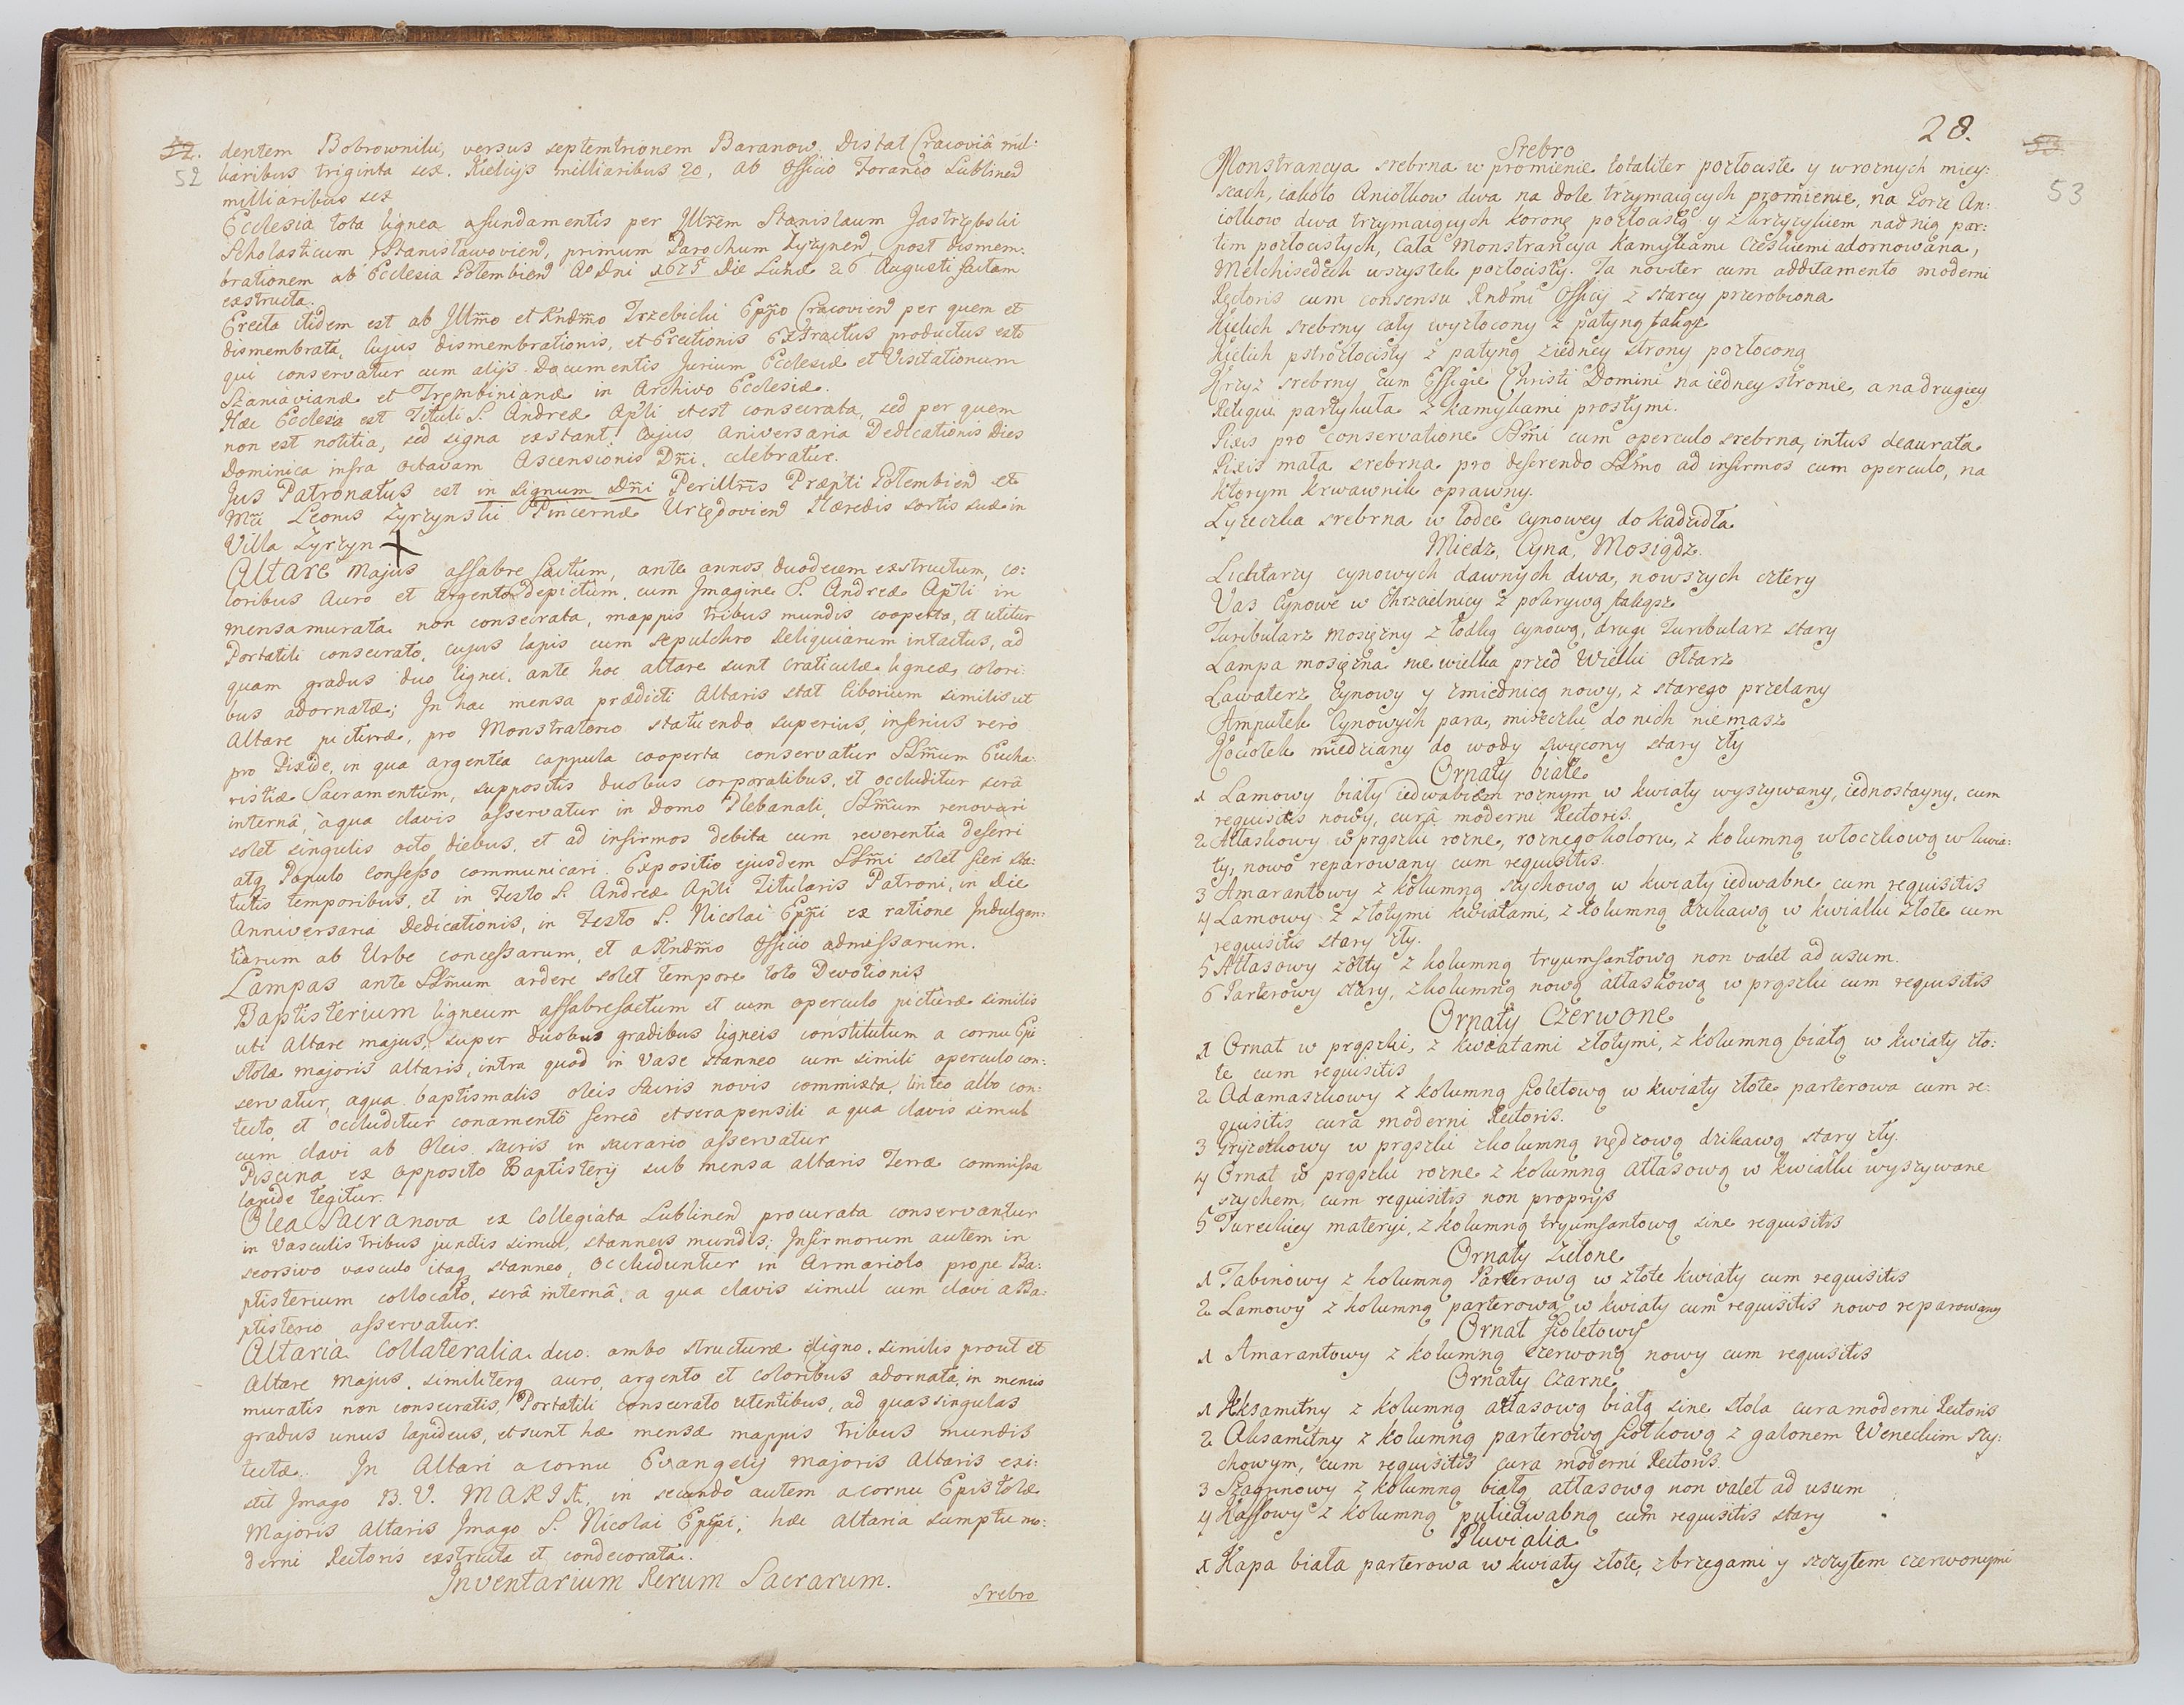 52.
52
dentem Bobrowniki, versus septemtrionem Baranow. Distat Cracoviâ mil:
liaribus triginta sex. Kielcijs milliaribus 20, ab Officio Foraneo Lublinen
milliaribus sex
Ecclesia tota lignea a fundamentis per Illrem Stanislaum Jastrzębski
Scholasticum Stanislawovien, primum Parochum Zyrzynen, post dismem:
brationem ab Ecclesia Gołembien Ao Dni 1675 die Lunæ 26 Augusti factam
exstructa.
Erecta itidem est ab Illmo et Rndmo Trzebicki Eppo Cracovien per quem et
dismembrata, cujus dismembrationis, et Erectionis Extractus productus est
qui conservatur cum alijs Documentis Jurium Ecclesiæ et Visitationum
Szaniavianæ et Trembinianæ in Archivo Ecclesiæ.
Hæc Ecclesia est Tituli S. Andreæ Apli et est consecrata, sed per quem
non est notitia, sed signa exstant: Cujus Aniversaria Dedicationis Dies
Dominica infra octavam Ascensionis Dni, celebratur.
Jus Patronatus est in signum Dni Perillris Præpti Gołembien et
Mci Leonis Zyrzynski Pincernæ Urzędovien Hæredis sortis suæ in
Villa Zyrzyn
Altare Majus affabre factum, ante annos duodecem exstructum, co:
loribus Auro et Argento depictum, cum Imagine S. Andreæ Apli in
mensa murata non consecrata, mappis tribus mundis cooperta, et utitur
Portatili consecrato, cujus lapis cum sepulchro Reliquiarum intactus, ad
quam gradus duo lignei, ante hoc altare sunt Craticulæ ligneæ, colori:
bus adornatæ; In hac mensa prædicti Altaris stat Ciborium similis ut
Altare picturæ, pro Monstratorio statuendo superius, inferius vero
pro Pixide, in qua argentea cappula cooperta conservatur SSmum Eucha:
ristiæ Sacramentum, suppositis duobus corporalibus, et occluditur serâ
internâ, a qua clavis asservatur in Domo Plebanali, SSmum renovari
solet singulis octo diebus, et ad infirmos debita cum reverentia deferri
atq Populo confesso communicari. Expositio ejusdem SSmi solet fieri sta:
tutis temporibus, et in Festo S. Andreæ Apli Titularis Patroni, in Die
Anniversaria Dedicationis, in Festo S. Nicolai Eppi ex ratione Indulgen:
tiarum ab Urbe concessarum, et a Rndmo Officio admissarum.
Lampas ante SSmum ardere solet tempore toto Devotionis
Baptisterium ligneum affabrefactum et cum operculo picturæ similis
uti Altare majus, super duobus gradibus ligneis constitutum a cornu Epi
stolæ majoris altaris, intra quod in Vase stanneo cum simili operculo con:
servatur, aqua baptismalis oleis Sacris novis commixta, linteo albo con:
tecto, et occluditur conamentô ferreô et sera pensili a qua clavis simul
cum clavi ab Oleis sacris in sacrario asservatur
Piscina ex opposito Baptisterij sub mensa altaris Terræ commissa
lapide tegitur.
Olea Sacra nova ex Collegiata Lublinen procurata conservantur
in Vasculis tribus junctis simul, stanneis mundis; Infirmorum autem in
seorsivo vasculo itaq stanneo, occluduntur in Armariolo prope Ba:
ptisterium collocato, serâ internâ, a qua clavis simul cum clavi a Ba:
ptisterio asservatur.
Altaria Collateralia duo. ambo structuræ è ligno, similis prout et
Altare Majus, similiterq auro, argento et coloribus adornata, in mensis
muratis non consecratis, Portatili consecrato utentibus, ad quas singulas
gradus unus lapideus, et sunt hæ mensæ mappis tribus mundis
tectæ. In Altari a cornu Evangelij majoris Altaris exi:
stit Imago B. V. MARIÆ, in secundo autem a cornu Epistolæ
Majoris Altaris Imago S. Nicolai Eppi, hæc Altaria sumptu mo:
derni Rectoris exstructa et condecorata.
Inventarium Rerum Sacrarum.
Srebro
28.
53
53
Srebro
Monstrancya srebrna w promienie totaliter pozłociste y w roznych miey:
scach, cakolo Aniołkow dwa na dole trzymaiących promienie, na Gorze An:
iołkow dwa trzymaiących koronę pozłocistą y z krzyzykiem nad nią par:
tim pozłocistych, Cała Monstrancya Kamykami Czeskiemi adornowana,
Melchisedech wszystek pozłocisty. Ta noviter cum additamento moderni
Rectoris cum consensu Rndmi Officij z starey przerobiona
Kielich srebrny cały wyzłocony z patyną takąz
Kielich pstrozłocisty z patyną ziedney strony pozłoconą
Krzyz srebrny cum Effigie Christi Domini na iedney stronie, a na drugiey
Reliquii partykuła z kamykami prostymi.
Pixis pro conservatione SSmi cum operculo srebrna, intus deaurata
Pixis mała srebrna pro deferendo SSmo ad infirmos cum operculo, na
ktorym krwawnik oprawny.
Łyzeczka srebrna w łodce cynowey do kadzidła
Miedz, Cyna, Mosiądz.
Lichtarzy cynowych dawnych dwa, nowszych cztery
Vas Cynowe w Chrzcielnicy z pokrywą takąsz
Turibularz mosięzny z łodką cynową, drugi Turibularz stary
Lampa mosięzna nie wielka przed Wielki Ołtarz
Lawaterz Cynowy y zmiednicą nowy, z starego przelany
Ampułek Cynowych para, miseczki do nich niemasz
Kociołek miedziany do wody swięcony stary zły
Ornaty białe
1 Lamowy biały iedwabiem roznym w kwiaty wyszywany, iednostayny, cum
requisitis nowy, curâ moderni Rectoris.
2 Atłaskowy w prąszki rozne, roznego koloru, z kolumną włoczkiową w kwia:
ty, nowo reparowany cum requisitis.
3 Amarantowy z kolumną szychową w kwiaty iedwabne cum requisitis
4 Lamowy z złotymi kwiatami, z kolumną dzikawą w kwiatki złote cum
requisitis stary zły.
5 Atłasowy zółty z kolumną tryumfantową non valet ad usum.
6 Parterowy stary, z kolumną nową atłaskową w prąszki cum requisitis
Ornaty Czerwone
1 Ornat w prąszki, z kwiatami złotymi, z kolumną białą w kwiaty zło:
te cum requisitis
2 Adamaszkowy z kolumną fioletową w kwiaty złote parterowa cum re:
quisitis cura moderni Rectoris.
3 Gryzetkowy w prąszki z kolumną rędzową dzikawą stary zły.
4 Ornat w prąszki rozne z kolumną atłasową w kwiatki wyszywane
szychem, cum requisitis non proprijs
5 Tureckiey materyi, z kolumną tryumfantową sine requisitis
Ornaty Zielone
1 Tabinowy z kolumną Parterową w złote kwiaty cum requisitis
2 Lamowy z kolumną parterową w kwiaty cum requisitis nowo reparowany
Ornat fioletowy
1 Amarantowy z kolumną czerwoną nowy cum requisitis
Ornaty Czarne
1 Aksamitny z kolumną atłasową białą sine stola cura moderni Rectoris
2 Aksamitny z kolumną parterową fiołkową z galonem Weneckim szy:
chowym, cum requisitis cura moderni Rectoris.
3 Szagrinowy z kolumną białą atłasową non valet ad usum
4 Kaffowy z kolumną pułiedwabną cum requisitis stary
Pluvialia
1 Kapa biała parterowa w kwiaty złote, z brzegami y szczytem czerwonymi